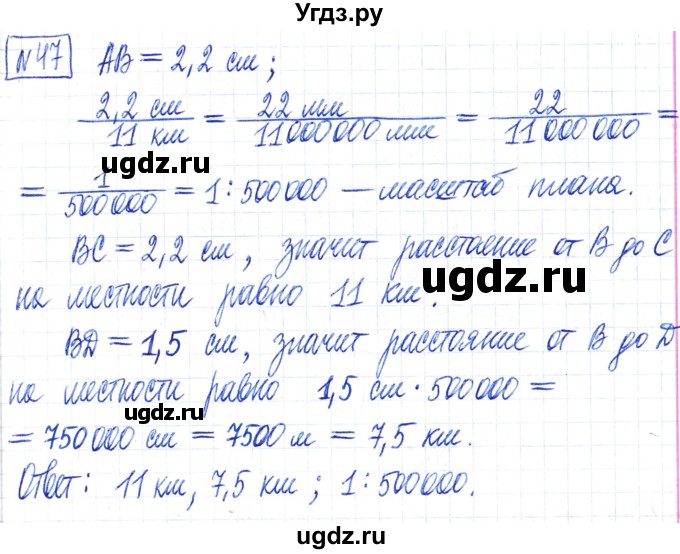 Угдз.ру
№47 AB = 2,2 см;
2,2 см / 11 км = 22 мм / 11000000 мм = 22 / 11 000 000 =
= 1 / 500 000 = 1 : 500 000 — масштаб плана.
BC = 2,2 см, значит расстояние от B до C
на местности равно 11 км.
BD = 1,5 см, значит расстояние от B до D
на местности равно 1,5 см · 500 000 =
= 750 000 см = 7500 м = 7,5 км.
Ответ: 11 км, 7,5 км; 1 : 500 000.
ugdz.ru
ugdz.ru
ugdz.ru
ugdz.ru
ugdz.ru